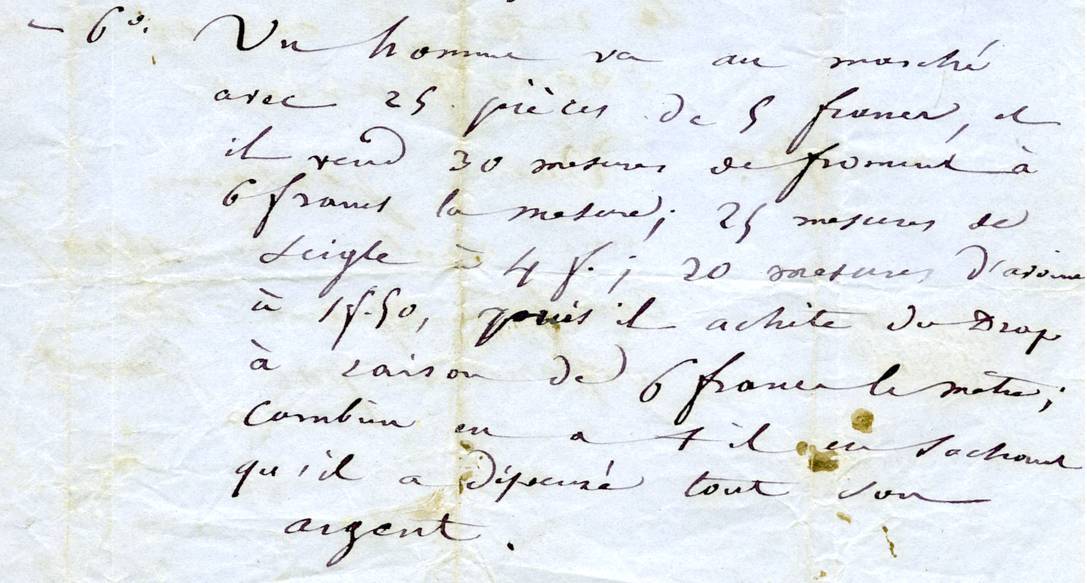 – 6°. Un homme va au marché
avec 25 pièces de 5 francs, et
il vend 30 mesures de froment à
6 francs la mesure; 25 mesures de
seigle à 4 f.; 20 mesures d'avoine
à 1f.50, puis il achète du Drap
à raison de 6 francs le mètre;
combien en a t il eu sachant
qu'il a dépensé tout son
argent.